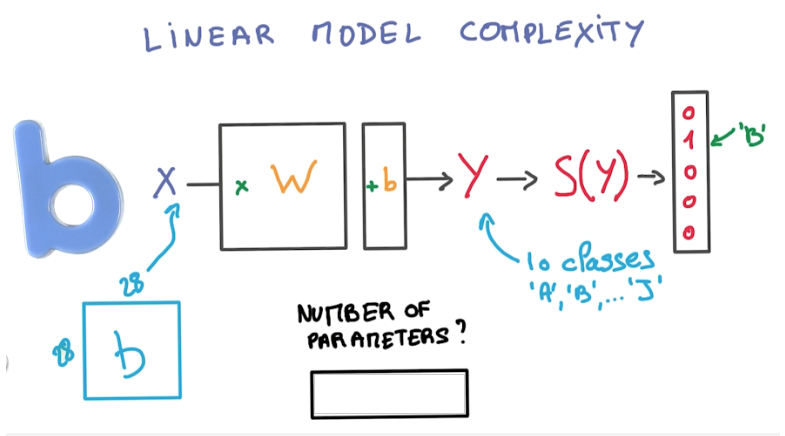 LINEAR MODEL COMPLEXITY
b
X × W + b → Y → S(Y) →
0
1
0
0
0
'B'
10 classes
'A', 'B', ... 'J'
28
28
b
NUMBER OF
PARAMETERS?